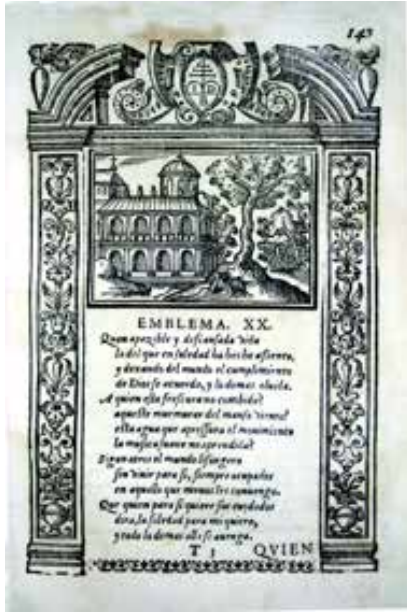 143
EMBLEMA. XX.
Quan apazible y descansada vida
la del que en soledad ha hecho assiento,
y dexando del mundo el cumplimiento
de Dios se acuerda, y lo demas olvida.
A quien esta frescura no combida?
aqueste murmurar del manso viento?
esta agua que apressura el movimiento
la musica suave no aprendida?
Sigan otros el mundo lisongero
sin vivir para si, siempre ocupados
en aquello que menos les convenga.
Que quien para si quiere sus cuydados
dira, la soledad para mi quiero,
y todo lo demas alla se avenga.
T QVIEN